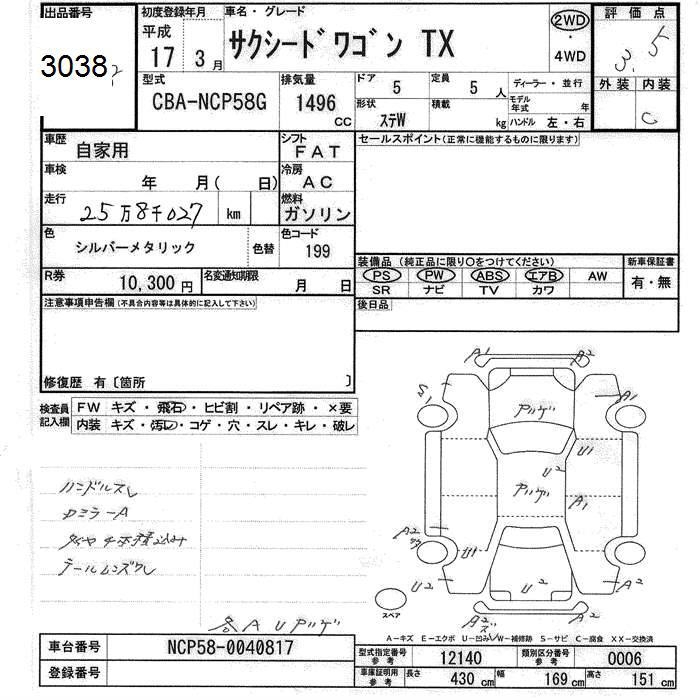 出品番号 初度登録年月 車名・グレード 評価点
3038 平成 17 3月 サクシードワゴン TX 2WD 4WD 3.5
型式 CBA-NCP58G 排気量 1496 CC
ドア 5 定員 5 人 ディーラー・並行 外装 内装
形状 ｽﾃW 積載 kg モデル年式 年 ハンドル 左・右 C
車歴 自家用 シフト FAT セールスポイント(正常に機能するものに限ります)
車検 年 月( 日) 冷房 AC
走行 25万8千027 km 燃料 ガソリン
色 シルバーメタリック 色替 色コード 199
装備品(純正品に限り○をつけてください) 新車保証書
R券 10,300円 名変通知期限 月 日
PS PW ABS エアB AW 有・無
SR ナビ TV カワ
注意事項申告欄(不具合内容等は具体的に記入して下さい) 後日品
修復歴 有〔箇所 〕
検査員記入欄 FW キズ・飛石・ヒビ割・リペア跡・×要
内装 キズ・汚レ・コゲ・穴・スレ・キレ・破レ
A1 A2
S1 A1
アツゲ
U1
U2
アツゲ A1
ハンドルスレ
Rミラー A
タイヤ4本積込み
テールレンズワレ
A2
U1
U2 U2 A2
A2
スペア
各AUアツゲ
A-キズ E-エクボ U-凹み W-補修跡 S-サビ C-腐食 XX-交換済
車台番号 NCP58-0040817
型式指定番号 参考 12140 類別区分番号 参考 0006
登録番号
車庫証明用 参考 長さ 430 cm 幅 169 cm 高さ 151 cm